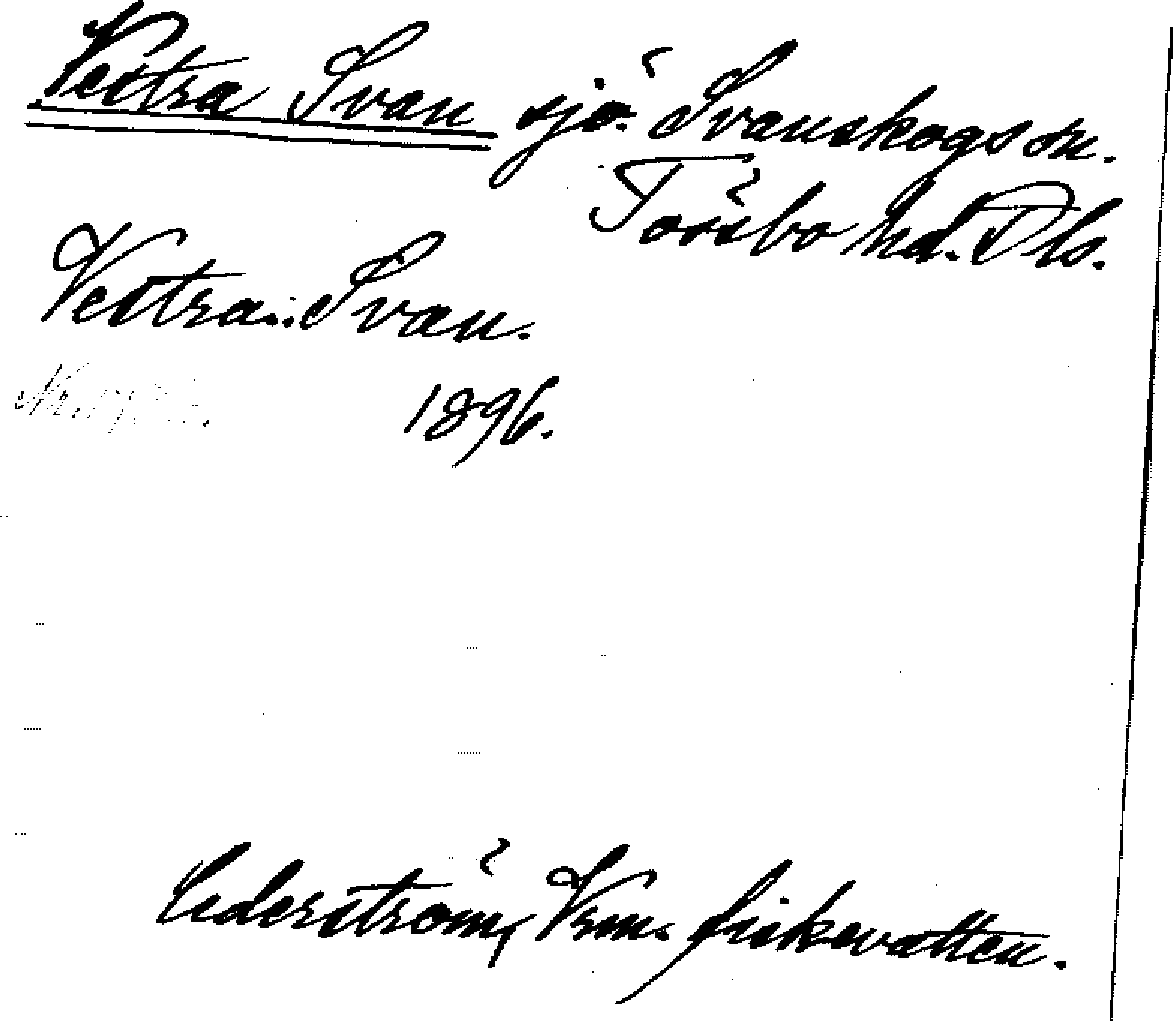 Vestra Svan sjö. Svanskogs sn.
Tössbo hd. Dls.
Vestra Svan.
1896.
Cederström, Vrm. fiskevatten.